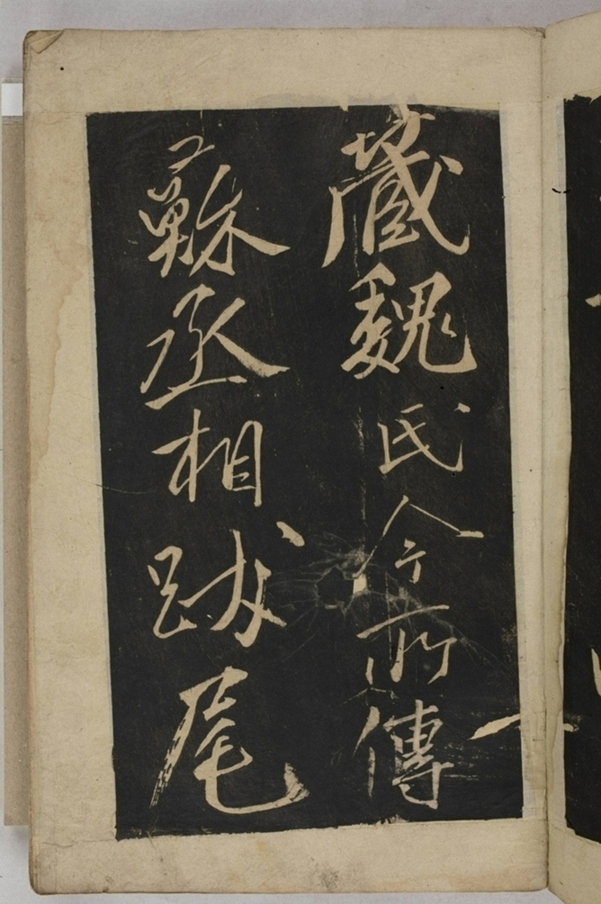 藏魏氏今所傳
蘇丞相跋尾